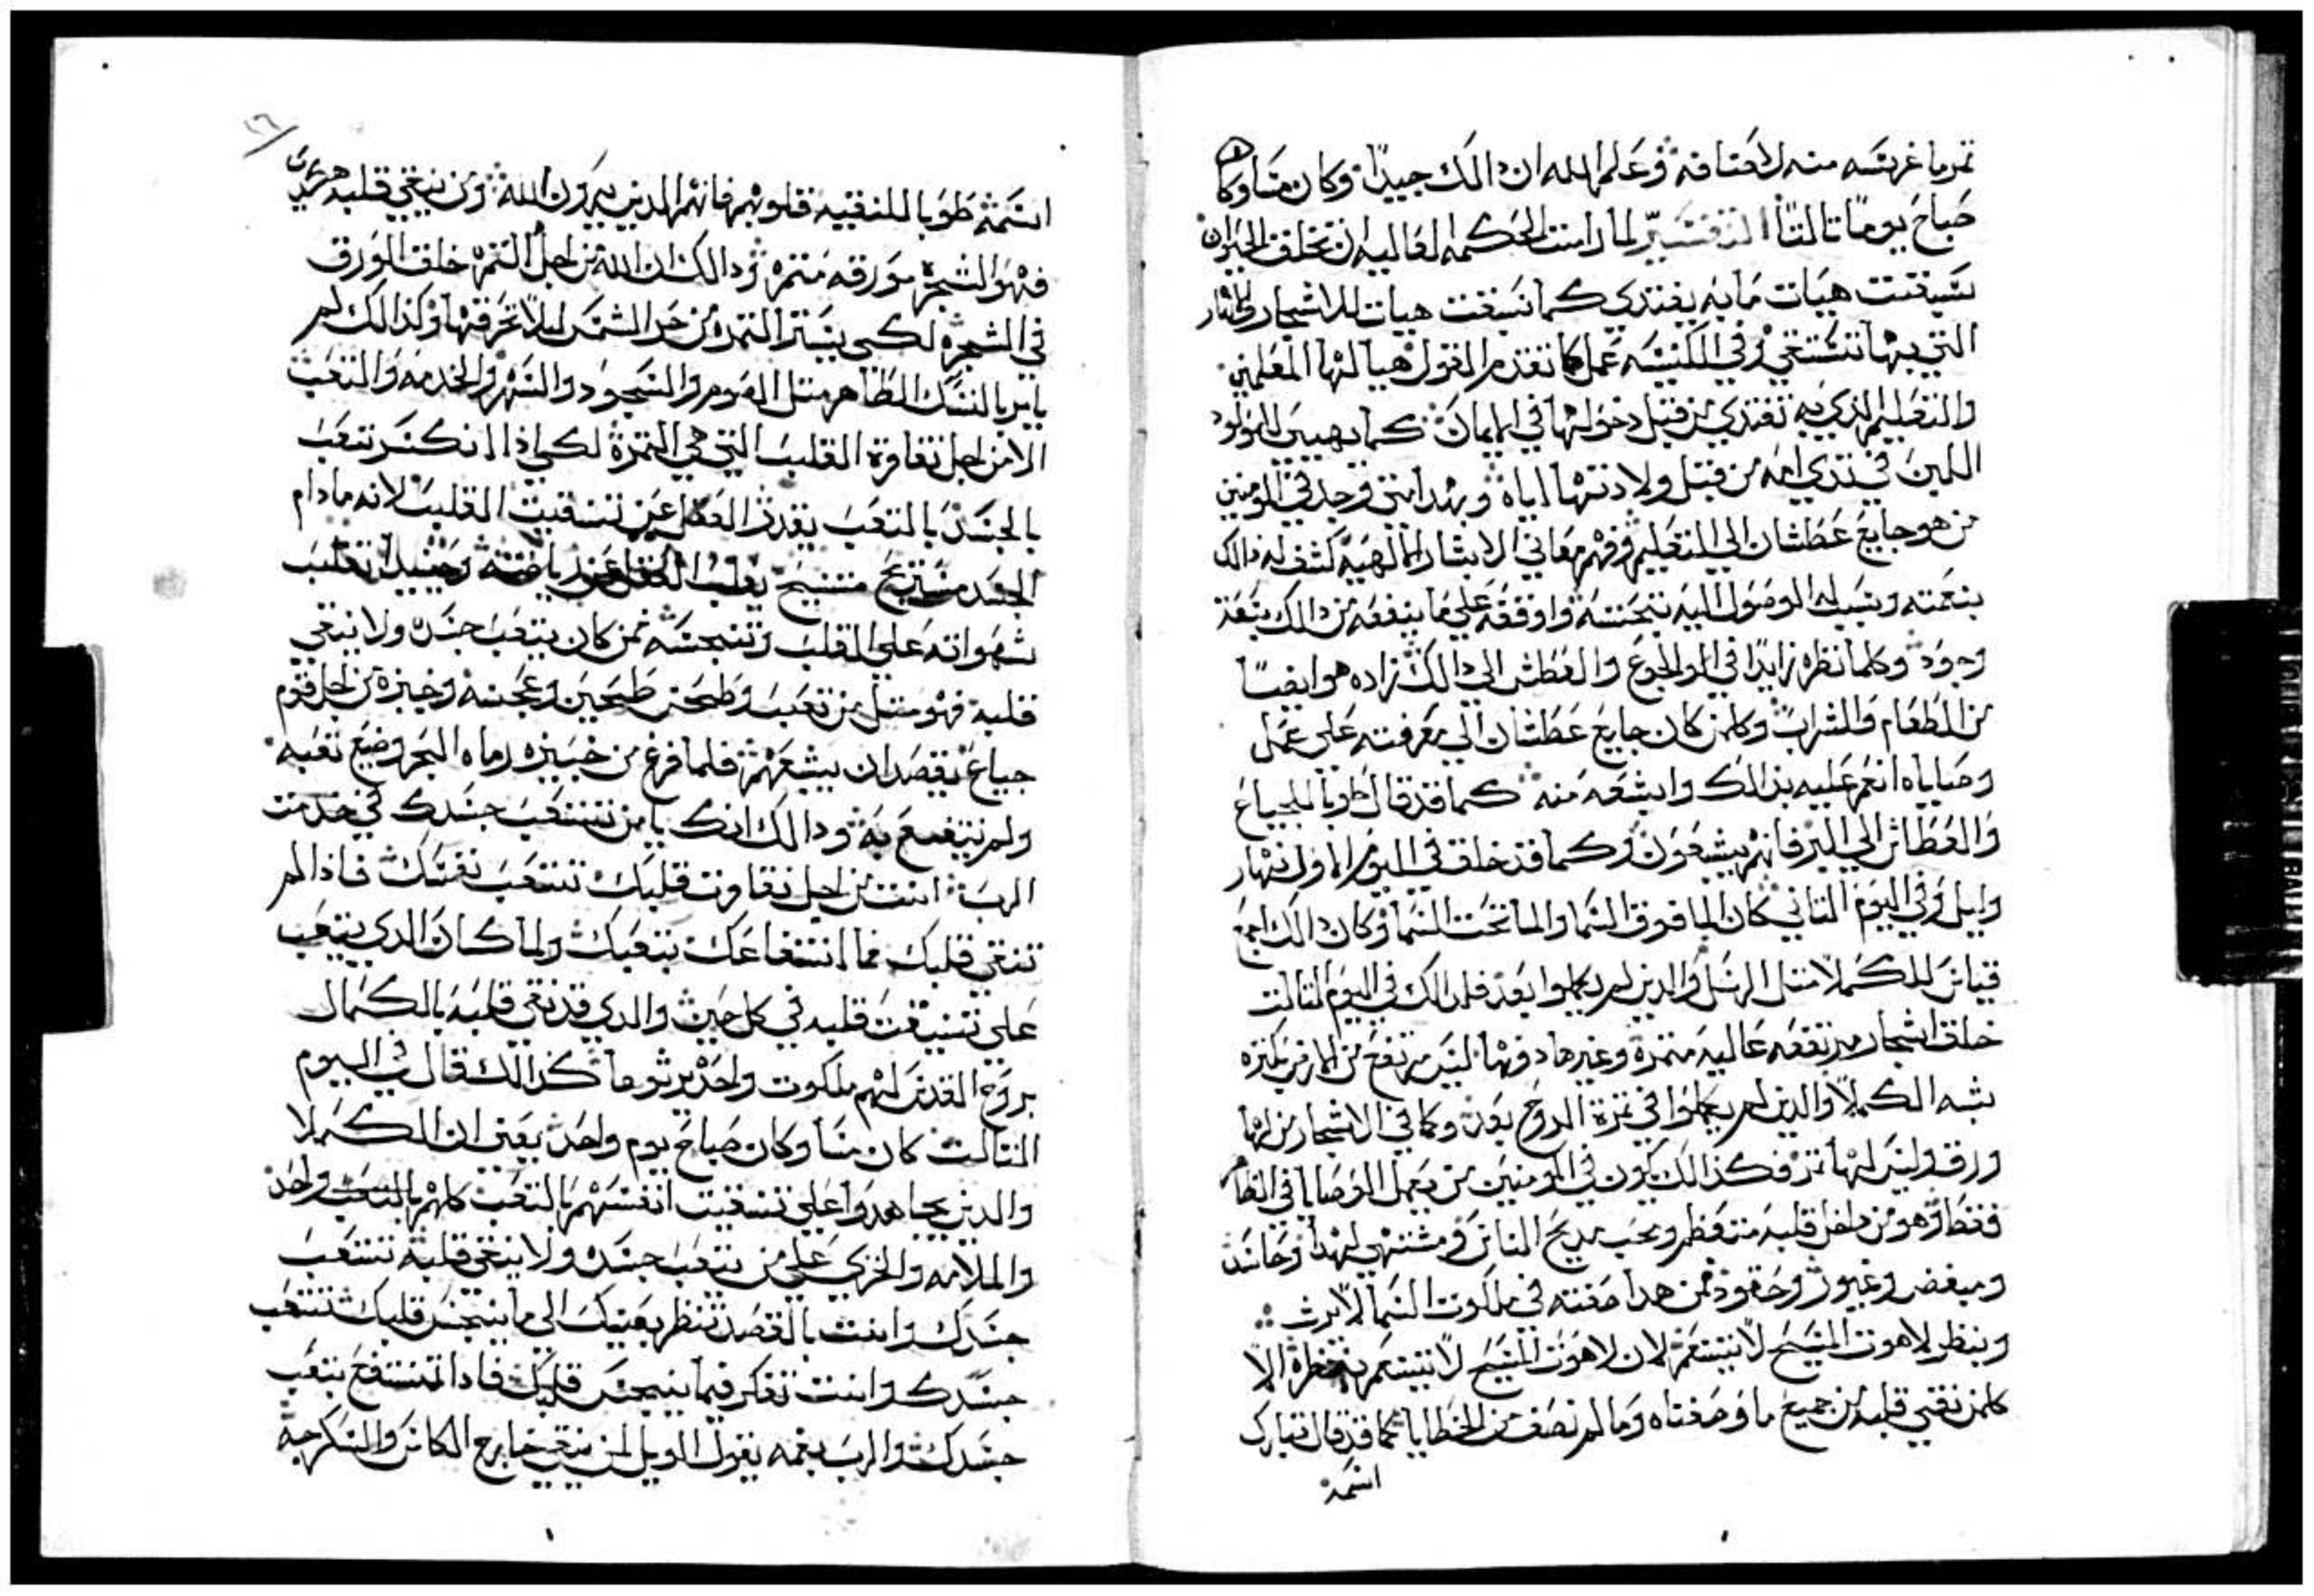 ثمر ما غرسه منه لاصنافه وعلم الله ان دالك جيدًا وكان مسا وكان
صباح يومًا تالتًا التفسير لما راست الحكمه العاليه ان تخلق الحيوان
سبقت هيات ما به يغتدي كما سبقت هيات للاشجار الامطار
التي بها تستقي وفي الكنيسه عمل كما تقدم القول هيا لها المعلمين
والتعليم الذي به تغتدي من قبل دخولها في الايمان كما يهيي للمولود
اللبن في تدي امه من قبل ولادتها اياه وبهدا متي وجد في المومنين
من هو جايع عطشان الي التعليم وفهم معاني الاسرار الالهيه كشف له دالك
بنعمته وسبب له الوصول اليه بتحننه واوقفه علي ما ينفعه من دالك بتعد
وجوده وكلما نظره زايدًا في الجوع والعطش الي دالك زاده هو ايضًا
من الطعام والشراب وكلمن كان جايع عطشان الي معرفته علي عمل
وصاياه انعم عليه بدالك واشبعه منه كما قد قال طوبا للجياع
والعطاش الي البر فانهم يشبعون وكما قد خلق في اليوم الاول نهار
وليل وفي اليوم التاني كان الما فوق السما والما تحت السما وكان دالك اجمع
قياس للكملا متل الرسل والدين لم يكملوا بعد فلدالك في اليوم التالت
خلق اشجار مرتفعه عاليه متمره وغيرها دونها ليس مرتفع من الارض بكتره
شبه الكملا والدين لم يكملوا في تمرة الروح بعد وكما في الاشجار من لها
ورق وليس لها تمر فكدالك يكون في المومنين من يعمل الوصايا في الظاهر
فقط وهو من داخل قلبه متعظم ويحب مديح الناس ومشتهي لهدا وحاسد
ومبغض وغيور وحقود فمن هدا صفته في ملكوت السما لا يرث
وينظر لاهوت المسيح لا يتنعم لان لاهوت المسيح لا يتنعم بنظره الا
كلمن نقي قلبه من جميع ما وصفناه وما لم نصف من الخطايا كما قد قال تبارك
اسمه
اسمه طوبا للنقيه قلوبهم فانهم الدين يرون الله ومن ينقي قلبه
فهو الشجره مورقه متمره ودالك ان الله من اجل التمره خلق الورق
في الشجره لكي يستر التمره من حر الشمس ليلا تحرقها وكدالك لم
يامر بالنسك الظاهر متل الصوم والسجود والسهر والخدمه والتعب
الا من اجل نقاوة القلب التي هي التمره لكي ادا انكسر بتعب
الجسد بالتعب يقدر العقل علي تنقيت القلب لانه ما دام
الجسد مستريح متنيح يغلب العقل عن رياضته وحينيد تغلب
شهواته علي القلب وتنجسه فمن كان يتعب جسده ولا ينقي
قلبه فهو متل من تعب وطحن طحين وعجنه وخبزه من اجل قوم
جياع يقصد ان يشبعهم فلما فرغ من خبيزه رماه البحر وضيع تعبه
ولم ينتفع به ودالك انك يا من تتعب جسدك في خدمت
الرب انت من اجل نقاوت قلبك تتعب نفسك فادا لم
تنقي قلبك فما انتفاعك بتعبك ولما كان الدي يتعب
علي تنقيت قلبه في كل حين والدي قد نقي قلبه بالكمال
بروح القدس لهم ملكوت واحد يرثوها كدالك قال في اليوم
التالت كان مسا وكان صباح يوم واحد يعني ان الكملا
والدين يجاهدوا علي تنقيت انفسهم بالتعب كلهم بالتعب واحد
والملامه والخزي علي من يتعب جسده ولا ينقي قلبه تتعب
جسدك وانت بالقصد تنظر بعينك الي ما ينجس قلبك تتعب
جسدك وانت تفكر فيما ينجس قلبك فادا تنتفع بتعب
جسدك والرب بفمه يقول الويل لمن ينقي خارج الكاس والسكرجه